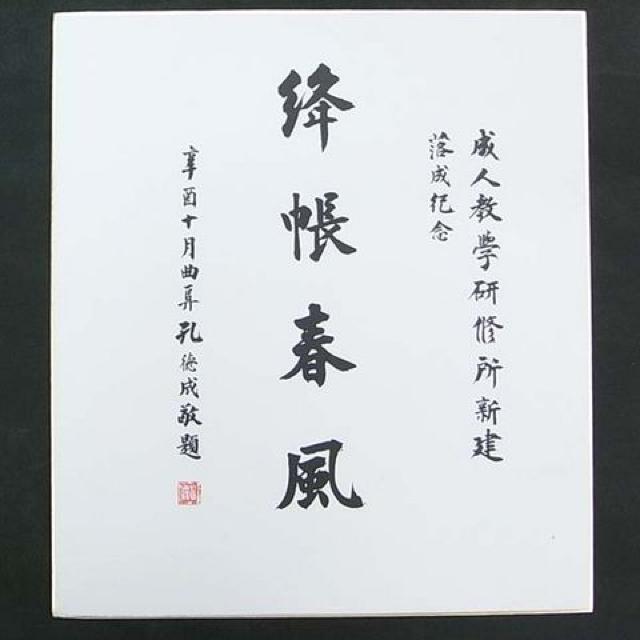 成人教學研修所新建
落成紀念
絳帳春風
辛酉十月曲阜孔德成敬題